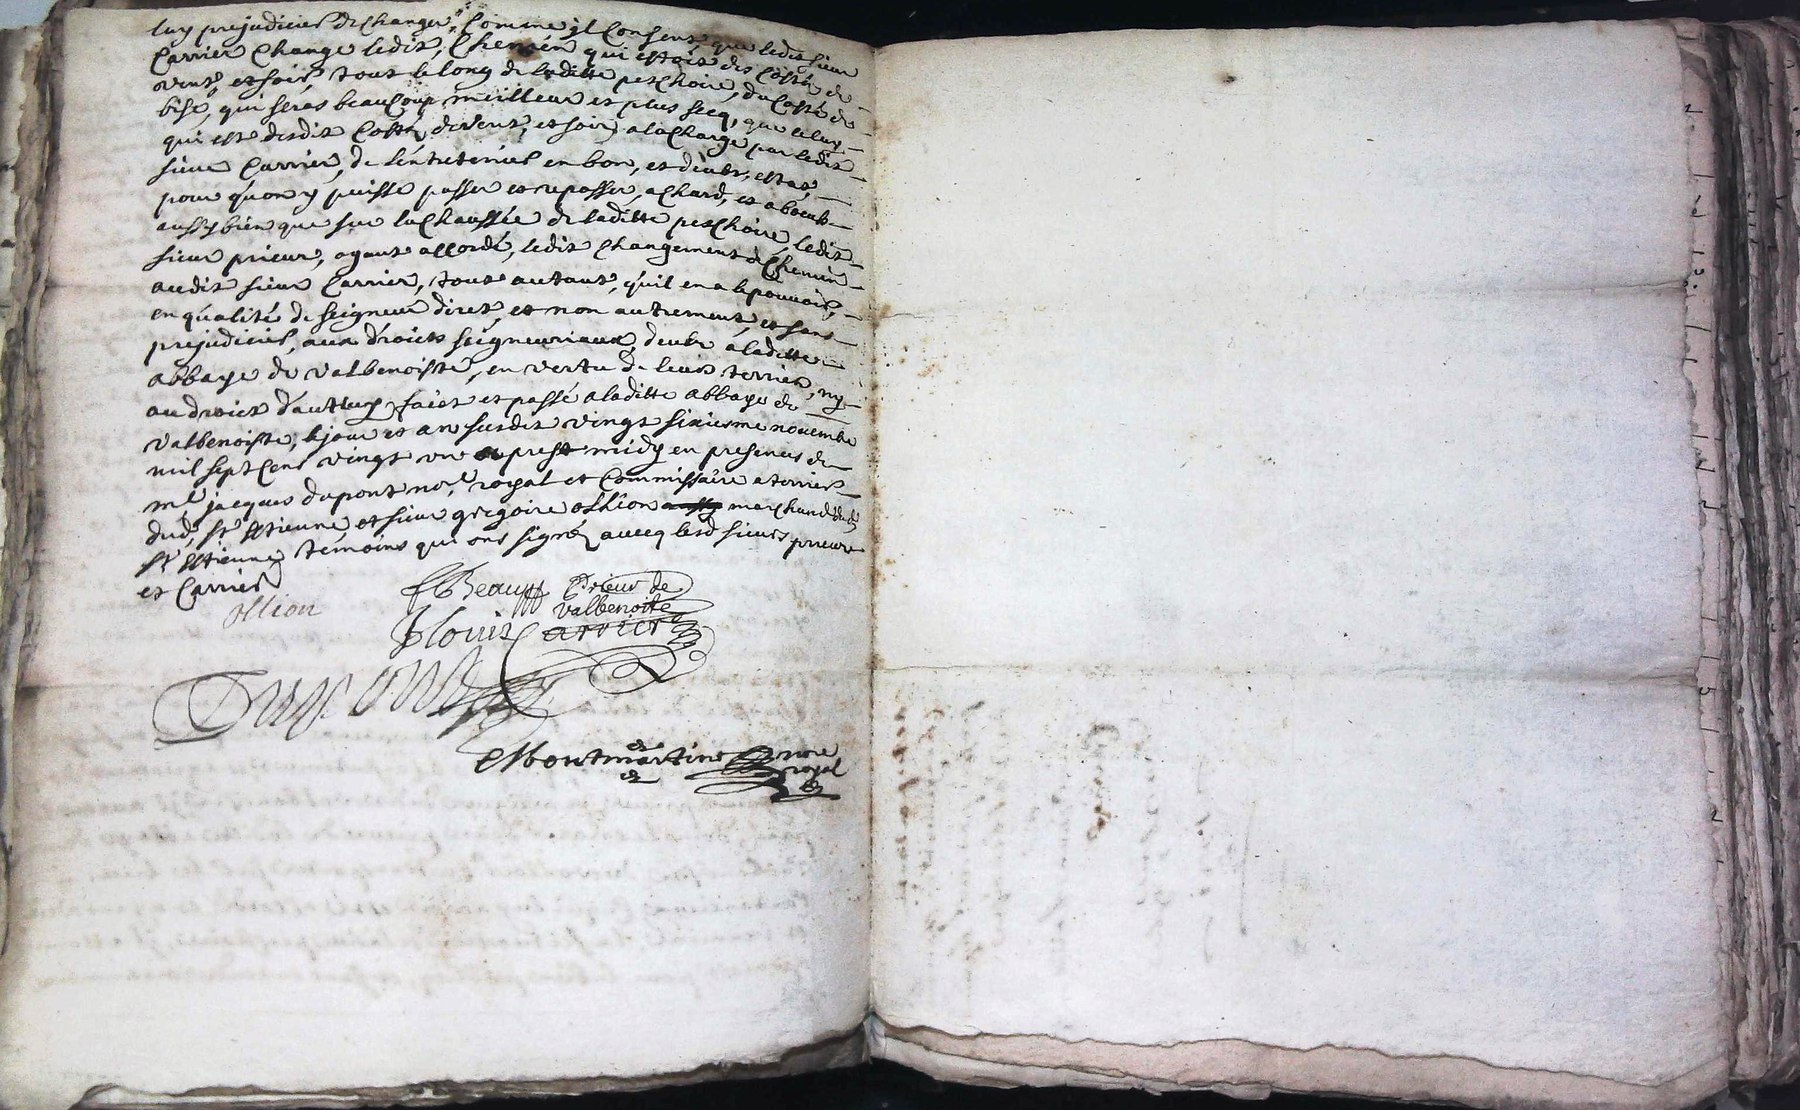 luy prejudicier de changer, Comme il Consent, que ledit sieur
Carrier Change ledit, Chemin qui estois des Costés de
vent, et soir, tout le long de laditte peschoire, du Costé de
bise, qui seras beaucoup meilleur et plus secq, que celuy
qui est desdit Costés de vent, et soir, a la Charge par ledit
sieur Carrier, de l'entretenir en bon, et deubt, estat,
pour qu'on y puisse passer et repasser, a Chard, et a boeufs
aussy bien que sur la Chaussée de laditte peschoire, ledit
sieur prieur, ayant accordé, ledit Changement de Chemin
audit sieur Carrier, tout autant, qu'il en a le pouvoir,
en qualité de seigneur diret, et non autrement, et sans
prejudicier, aux droicts seigneuriaux, deubs a laditte
abbaye de valbenoiste, en vertu de leurs terriers, ny
au droict d'autruy, faict et passé a laditte abbaye de
valbenoiste, le jour et an susdit vingt sixiesme novembre
mil sept Cens vingt un apres midy en presence de
me jacques dupont nore royal et Commissaire a terriers
dud. st Estienne et sieur gregoire ollion marchand dud
st Estienne temoins qui ont signé avecq lesd sieurs prieur
et Carrier
ollion
Prieur de
valbenoite
Louis Carrier
Dupont
Montmartin nore
royal